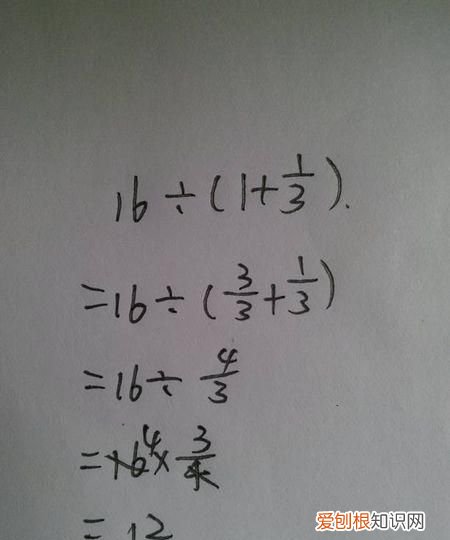 16÷(1+1/3).
=16÷(3/3+1/3)
=16÷4/3
=16⁴×3/4
=12
爱创根知识网